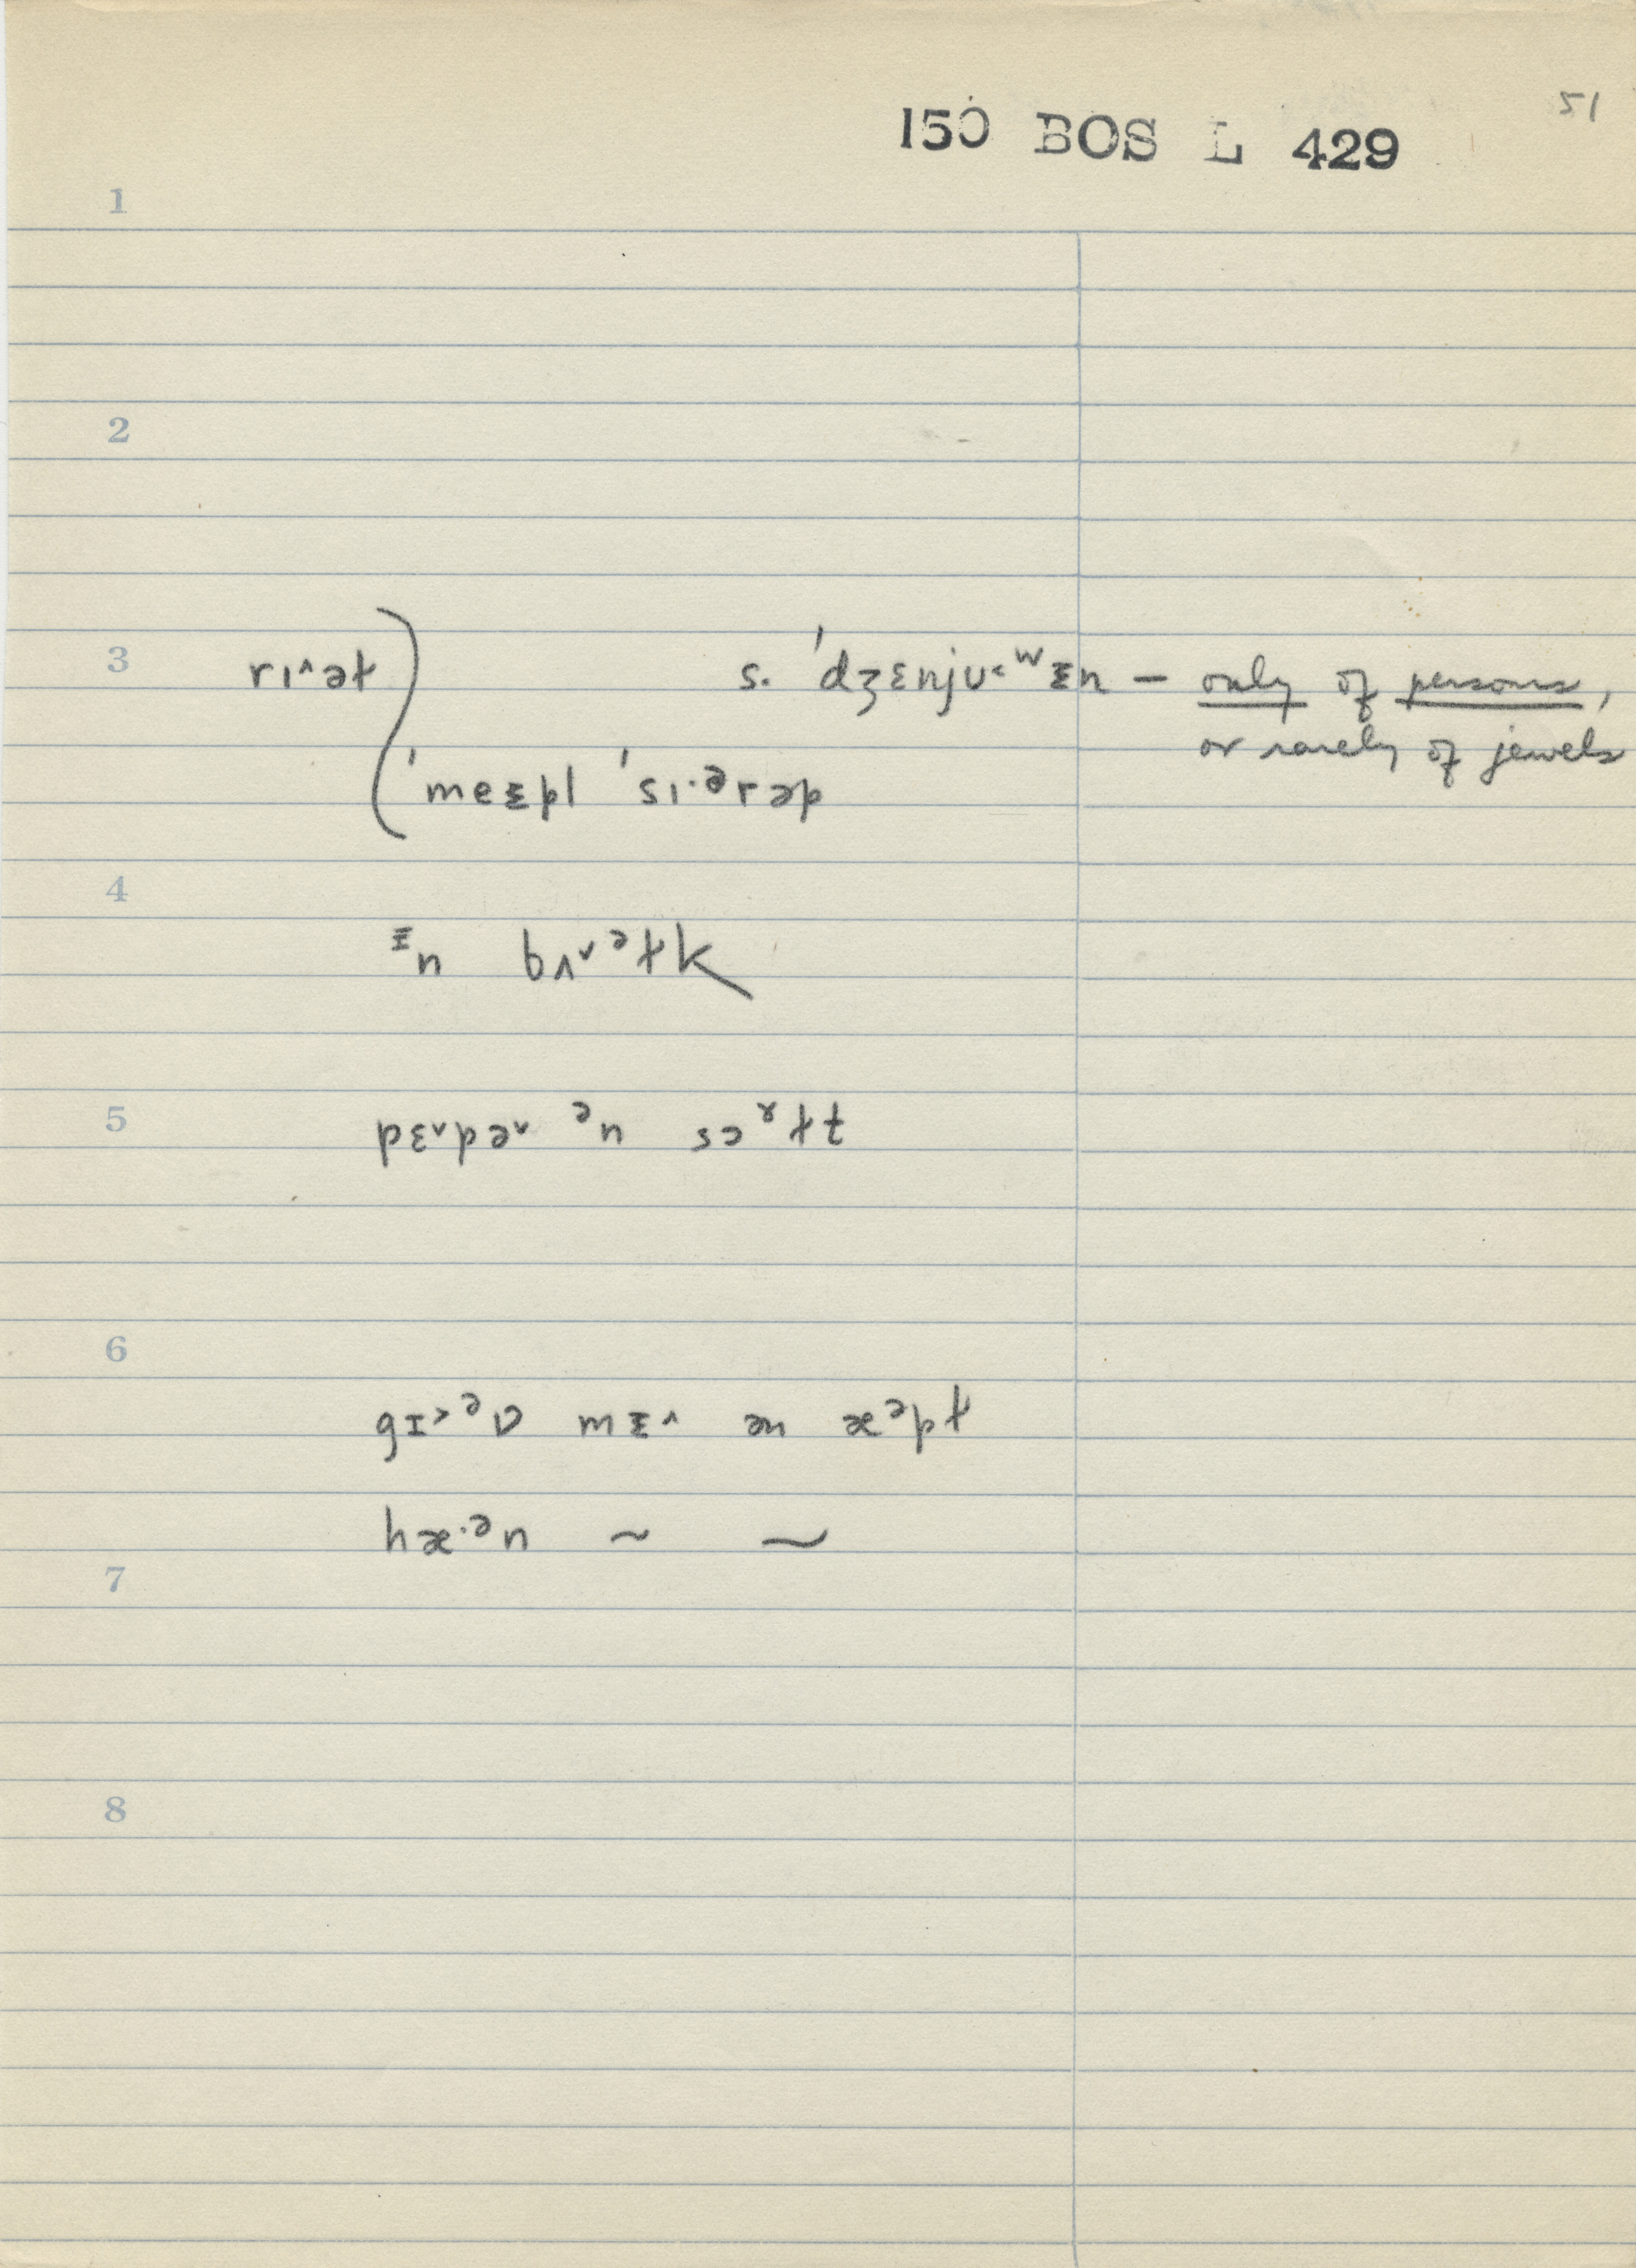 51
150 BOS L 429
1
2
3 rɪ˄ət s. ˈdʒɛnjʊ˂ʷᵻn — only of persons,
or rarely of jewels
ˈmeᵻpl ˈsɪ·ᵊrəp
4 ᵻn bʌ˅ᵊtk
5 pɛ˅pə˅ ᵊn sɔˠtt
6 gɪ˃ᵊʋ mᵻ˄ ən æᵊpt
hæ·ᵊn ~ ~
7
8